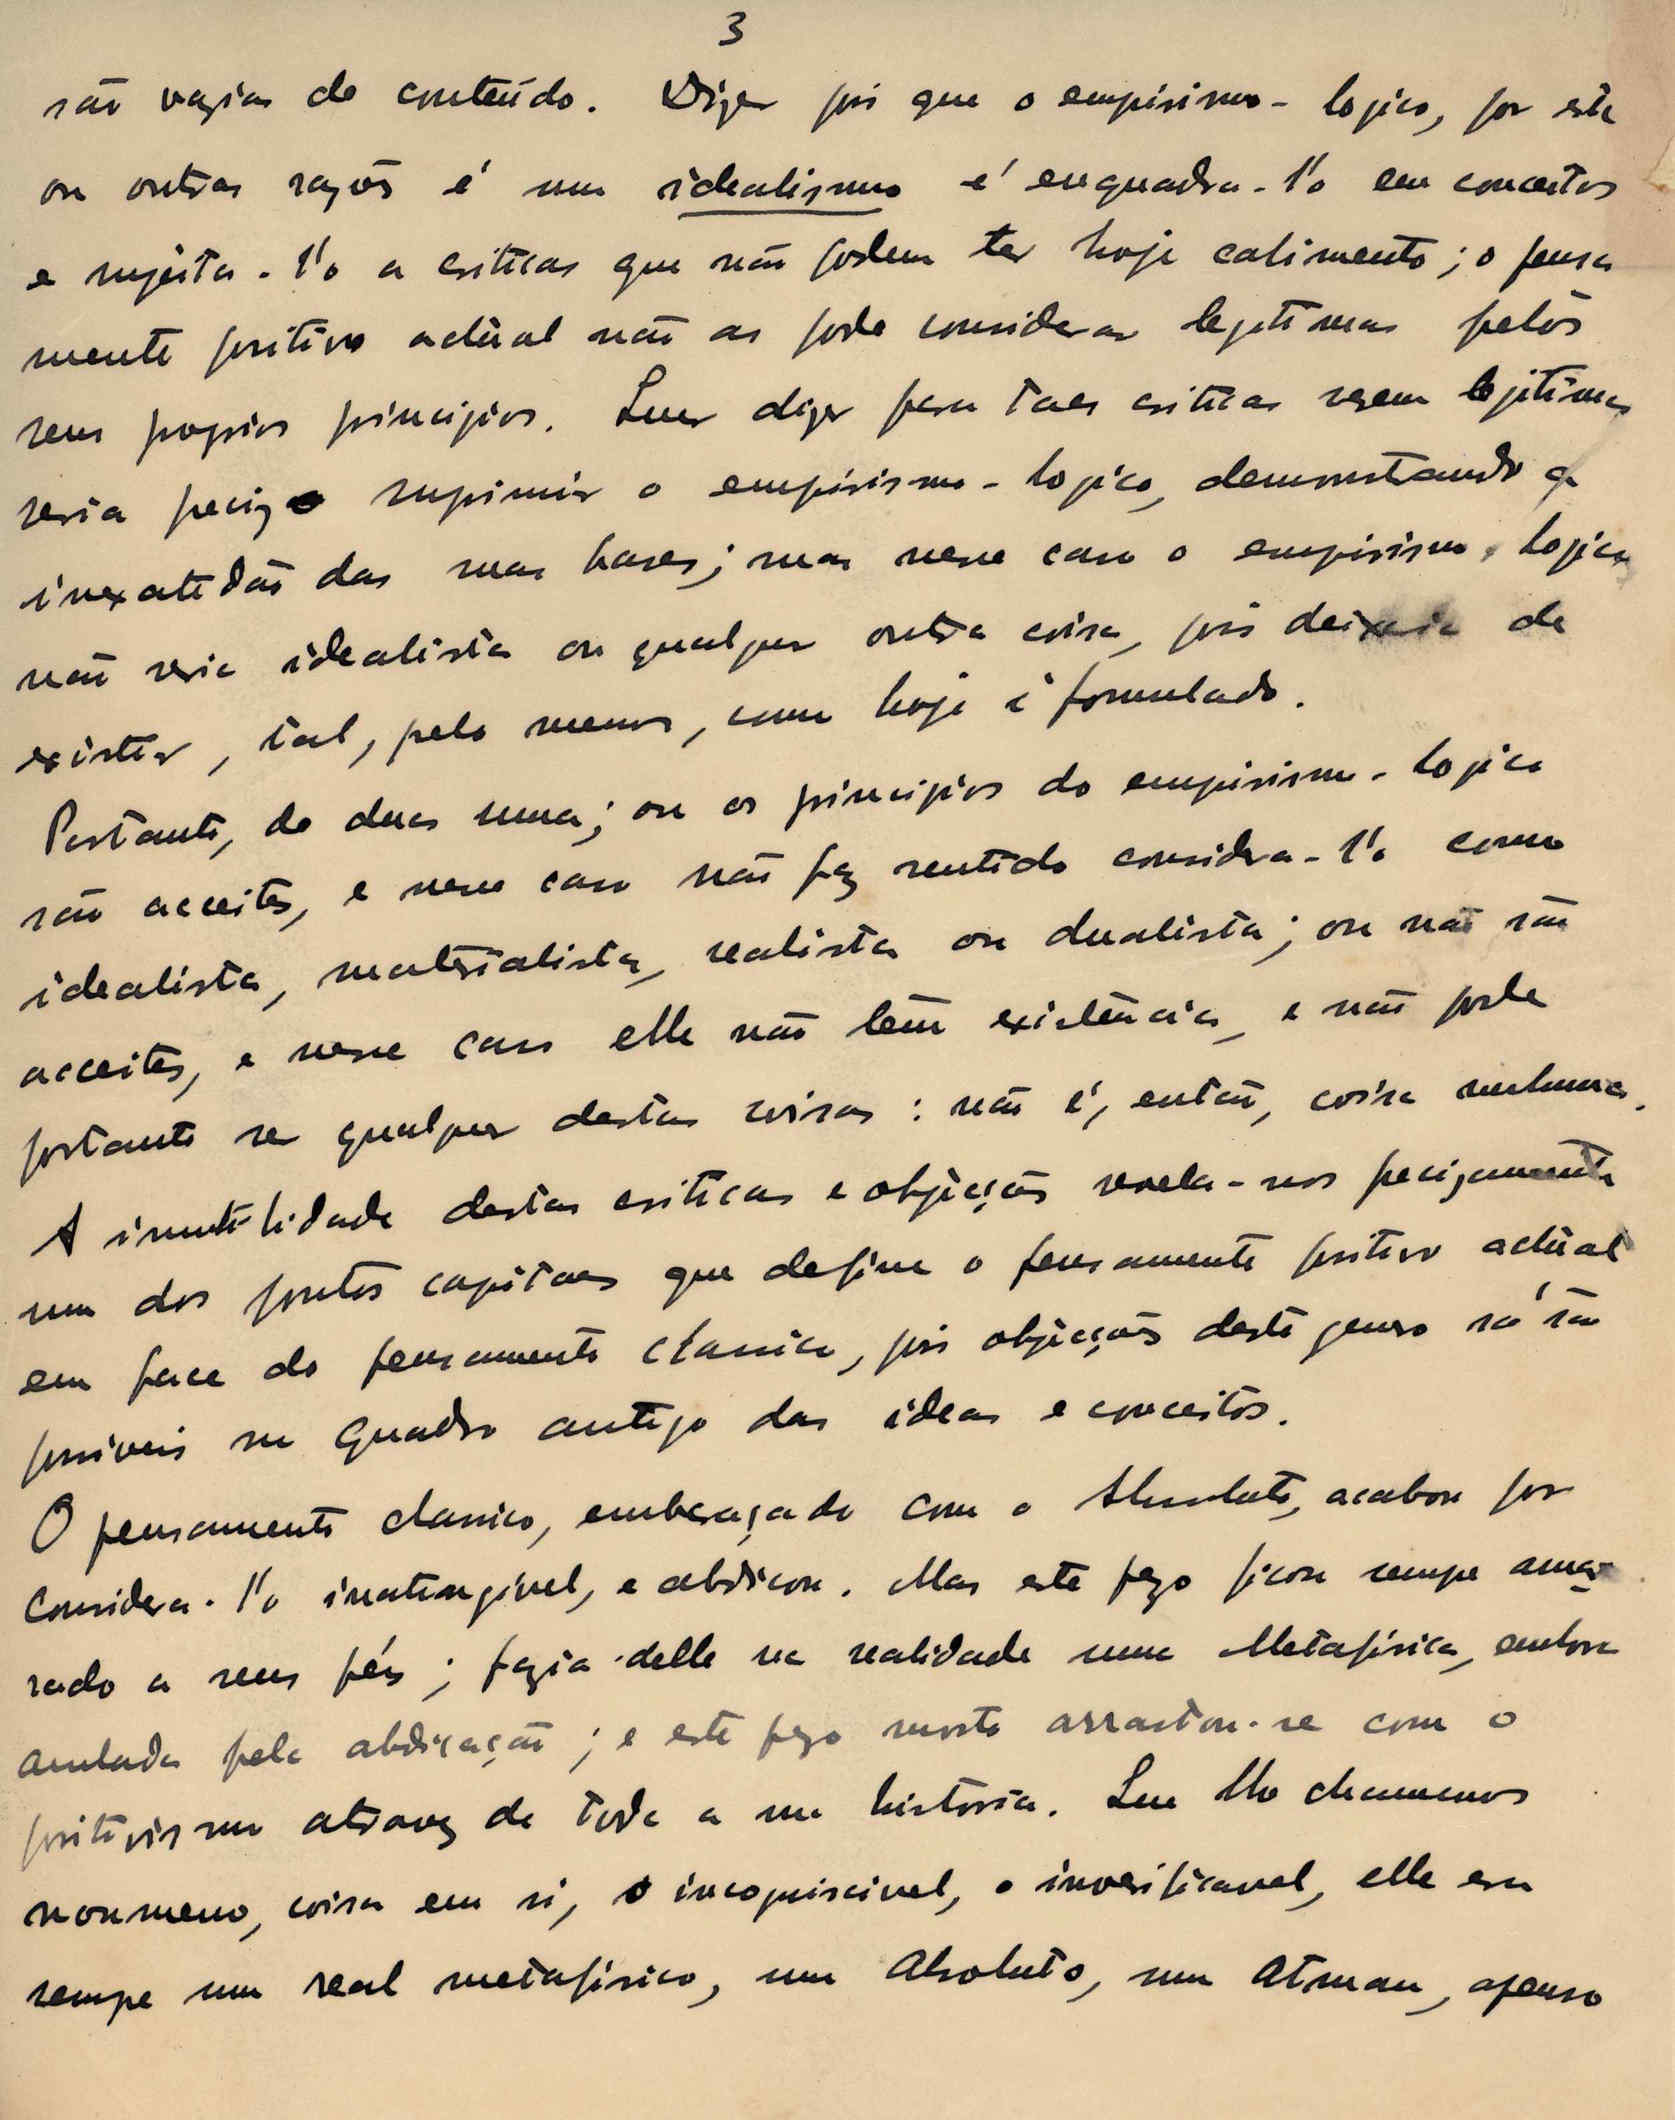 3
são vazias de conteúdo. Dizer pois que o empirismo-logico, por esta
ou outras razões é um idealismo é enquadra-l'o em conceitos
e sujeita-l'o a criticas que não podem ter hoje cabimento; o pensa
mento positivo actùal não as pode considerar legitimas pelos
seus proprios principios. Quer dizer para taes criticas serem legitimas
seria precizo suprimir o empirismo-logico, demonstrando a
inexatidão das suas bases; mas nesse caso o empirismo-logico
não seria idealista ou qualquer outra coisa, pois deixaria de
existir, tal, pelo menos, como hoje é formulado.
Portanto, de duas uma; ou os principios do empirismo-logico
são acceites, e nesse caso não faz sentido considera-l'o como
idealista, materialista, realista ou dualista; ou não são
acceites, e nesse caso elle não têm existência, e não pode
portanto ser qualquer destas coisas: não é, então, coisa nenhuma.
A inutilidade destas criticas e objecções revela-nos precizamente
um dos pontos capitaes que define o pensamento positivo actùal
em face do pensamento classico, pois objecções deste genero só são
possiveis no quadro antigo das ideas e conceitos.
O pensamento classico, embaraçado com o Absoluto, acabou por
considera-l'o inatingivel, e abdicou. Mas este pezo ficou sempre amar
rado a seus pés; fazia delle na realidade uma Metafísica, embora
anulada pela abdicação; e este pezo morto arrastou-se com o
positivismo atravez de toda a sua historia. Quer lhe chamemos
noumeno, coisa em si, o incogniscivel, o inverificavel, elle era
sempre um real metafísico, um Absoluto, um Atman, apenso